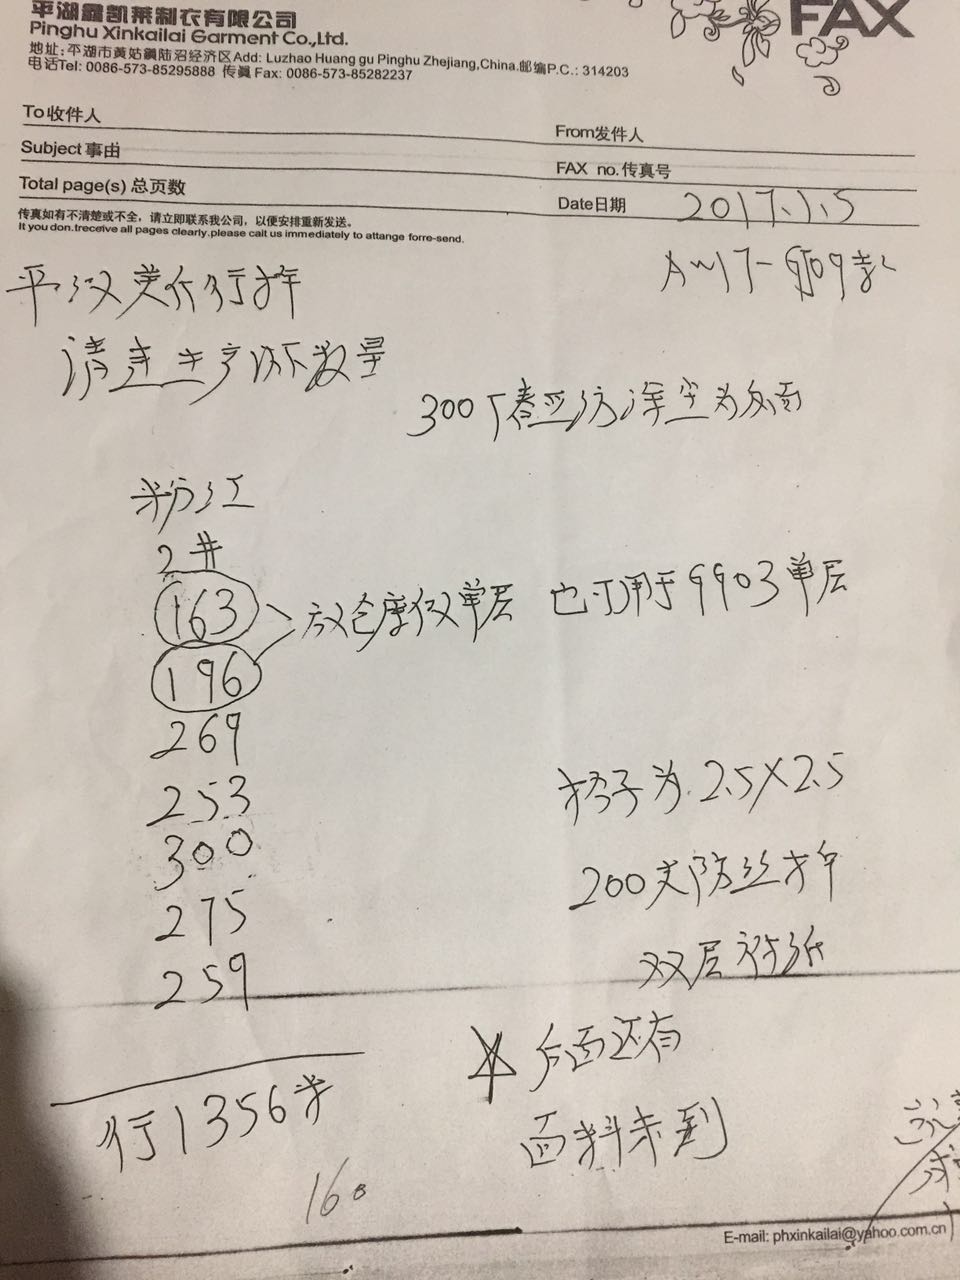 平湖鑫凯莱制衣有限公司
FAX
Pinghu Xinkailai Garment Co.,Ltd.
地址:平湖市黄姑鎭陆沼经济区Add: Luzhao Huang gu Pinghu Zhejiang,China.邮编P.C.: 314203
电话Tel: 0086-573-85295888 传眞 Fax: 0086-573-85282237
To收件人
From发件人
Subject 事由
FAX no.传真号
Total page(s) 总页数
Date日期 2017.1.5
传真如有不清楚或不全，请立即联系我公司，以便安排重新发送。
It you don.treceive all pages clearly.please calt us immediately to attange forre-send.
AW17-9909款
平汉 行棉
请速生产以下数量
300T春亚纺涂尘为反面
粉红
2#
163
放仓库仅单层 也可用于9903单层
196
269
253
格子为2.5X2.5
300
200克防丝棉
275
双层衬纸
259
后面还有
行1356米
面料未到
160
E-mail: phxinkailai@yahoo.com.cn